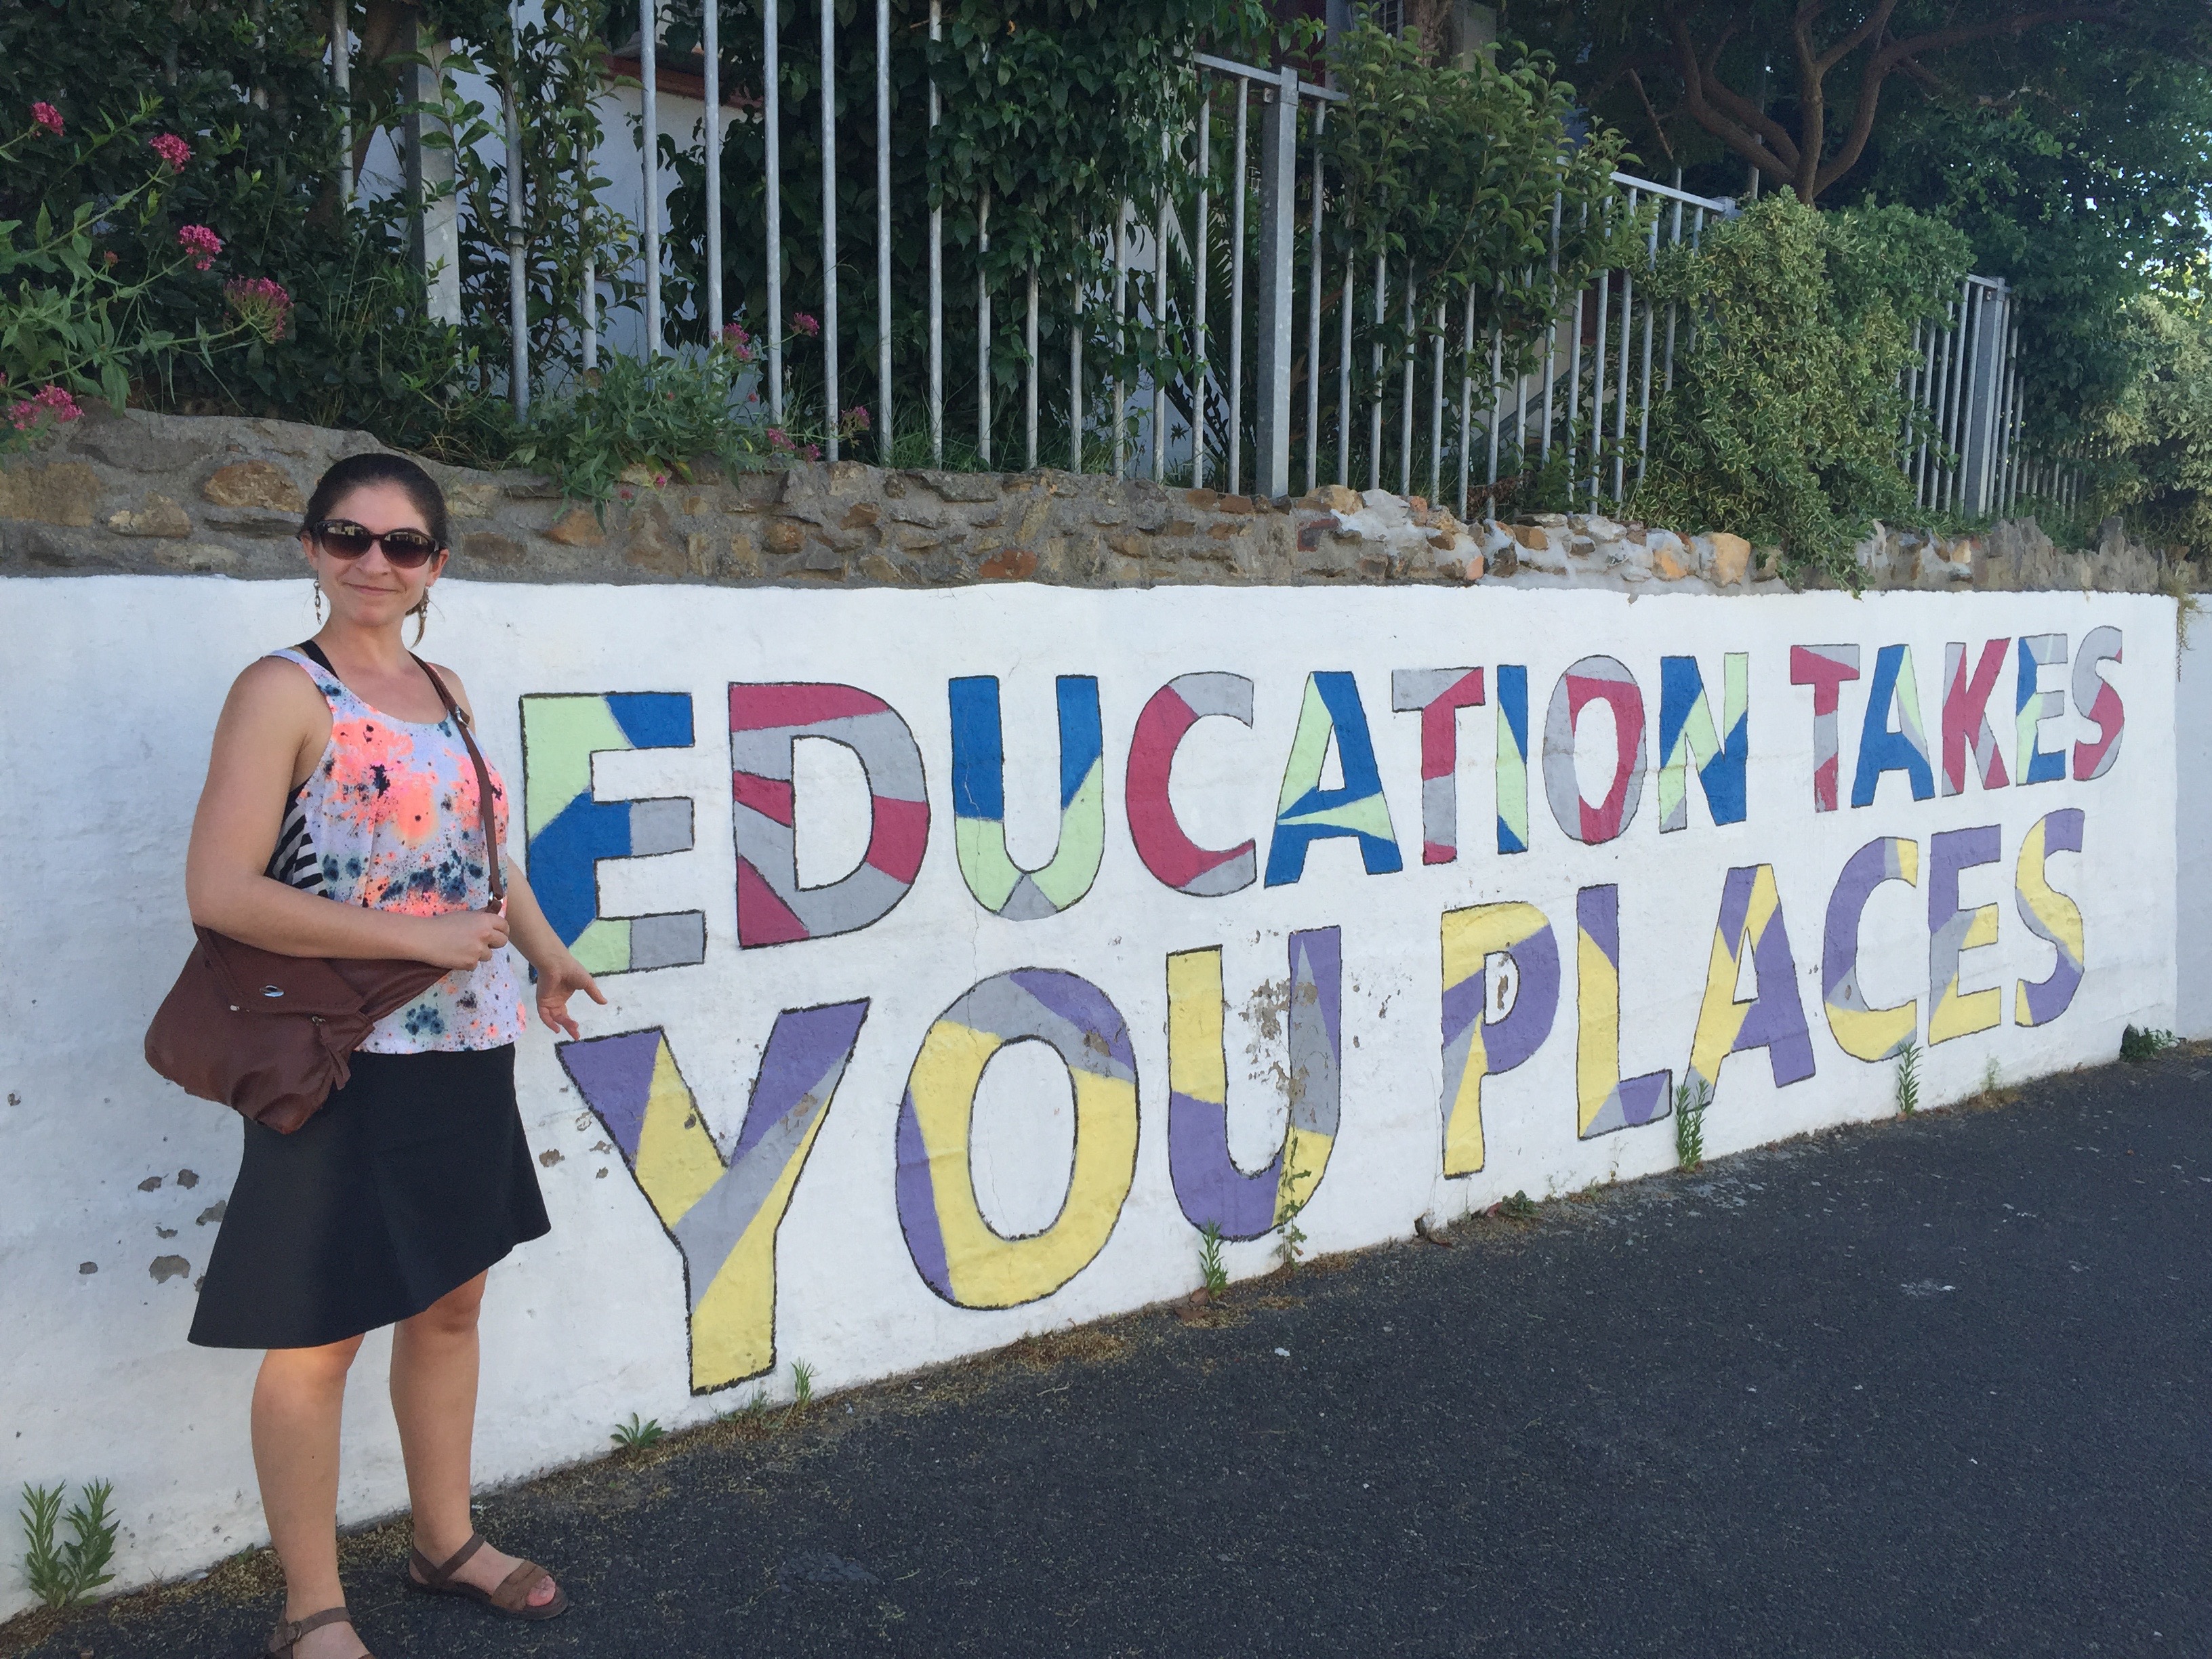 EDUCATION TAKES
YOU PLACES